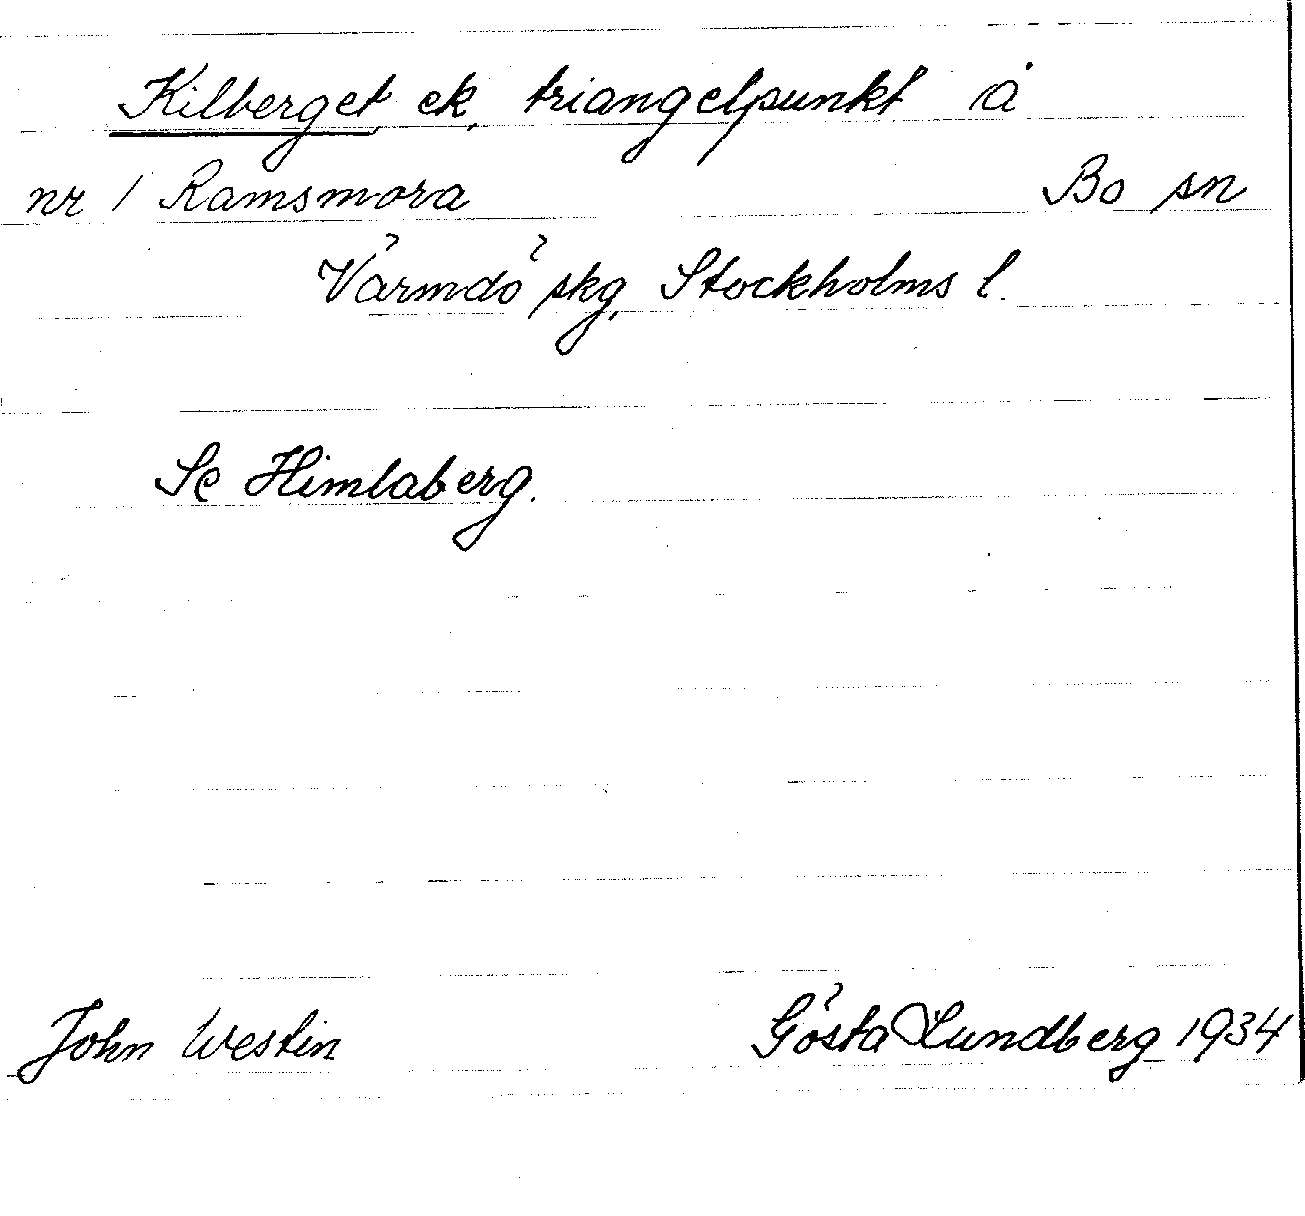 Kilberget, ek. triangelpunkt å
nr 1 Ramsmora Bo sn
Värmdö skg, Stockholms l.
Se Himlaberg.
John Westin Gösta Lundberg 1934